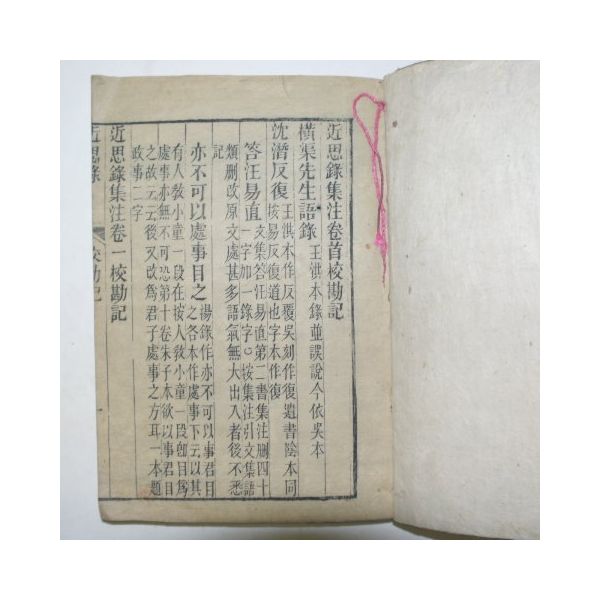 近思錄集注卷首校勘記
橫渠先生語錄 王洪本錄並誤說今依吳本
沈潛反復 王洪本作反覆吳刻作復遺書陰本同
按易反復道也字本作復
答汪易直 文集答汪易直第二書集注刪四十
一字加一錄字○按集注引文集語
類刪改原文處甚多語氣無大出入者後不悉
記
亦不可以處事目之 楊錄作亦不可以事君目
之各本作處事下云以其
有人教小童一段在按人教小童一段卽目爲
處事亦無不可恐第十卷朱子本欲以事君目
之故云云後又改爲君子處事之方耳一本題
政事二字
近思錄集注卷一校勘記
近思錄 校勘記